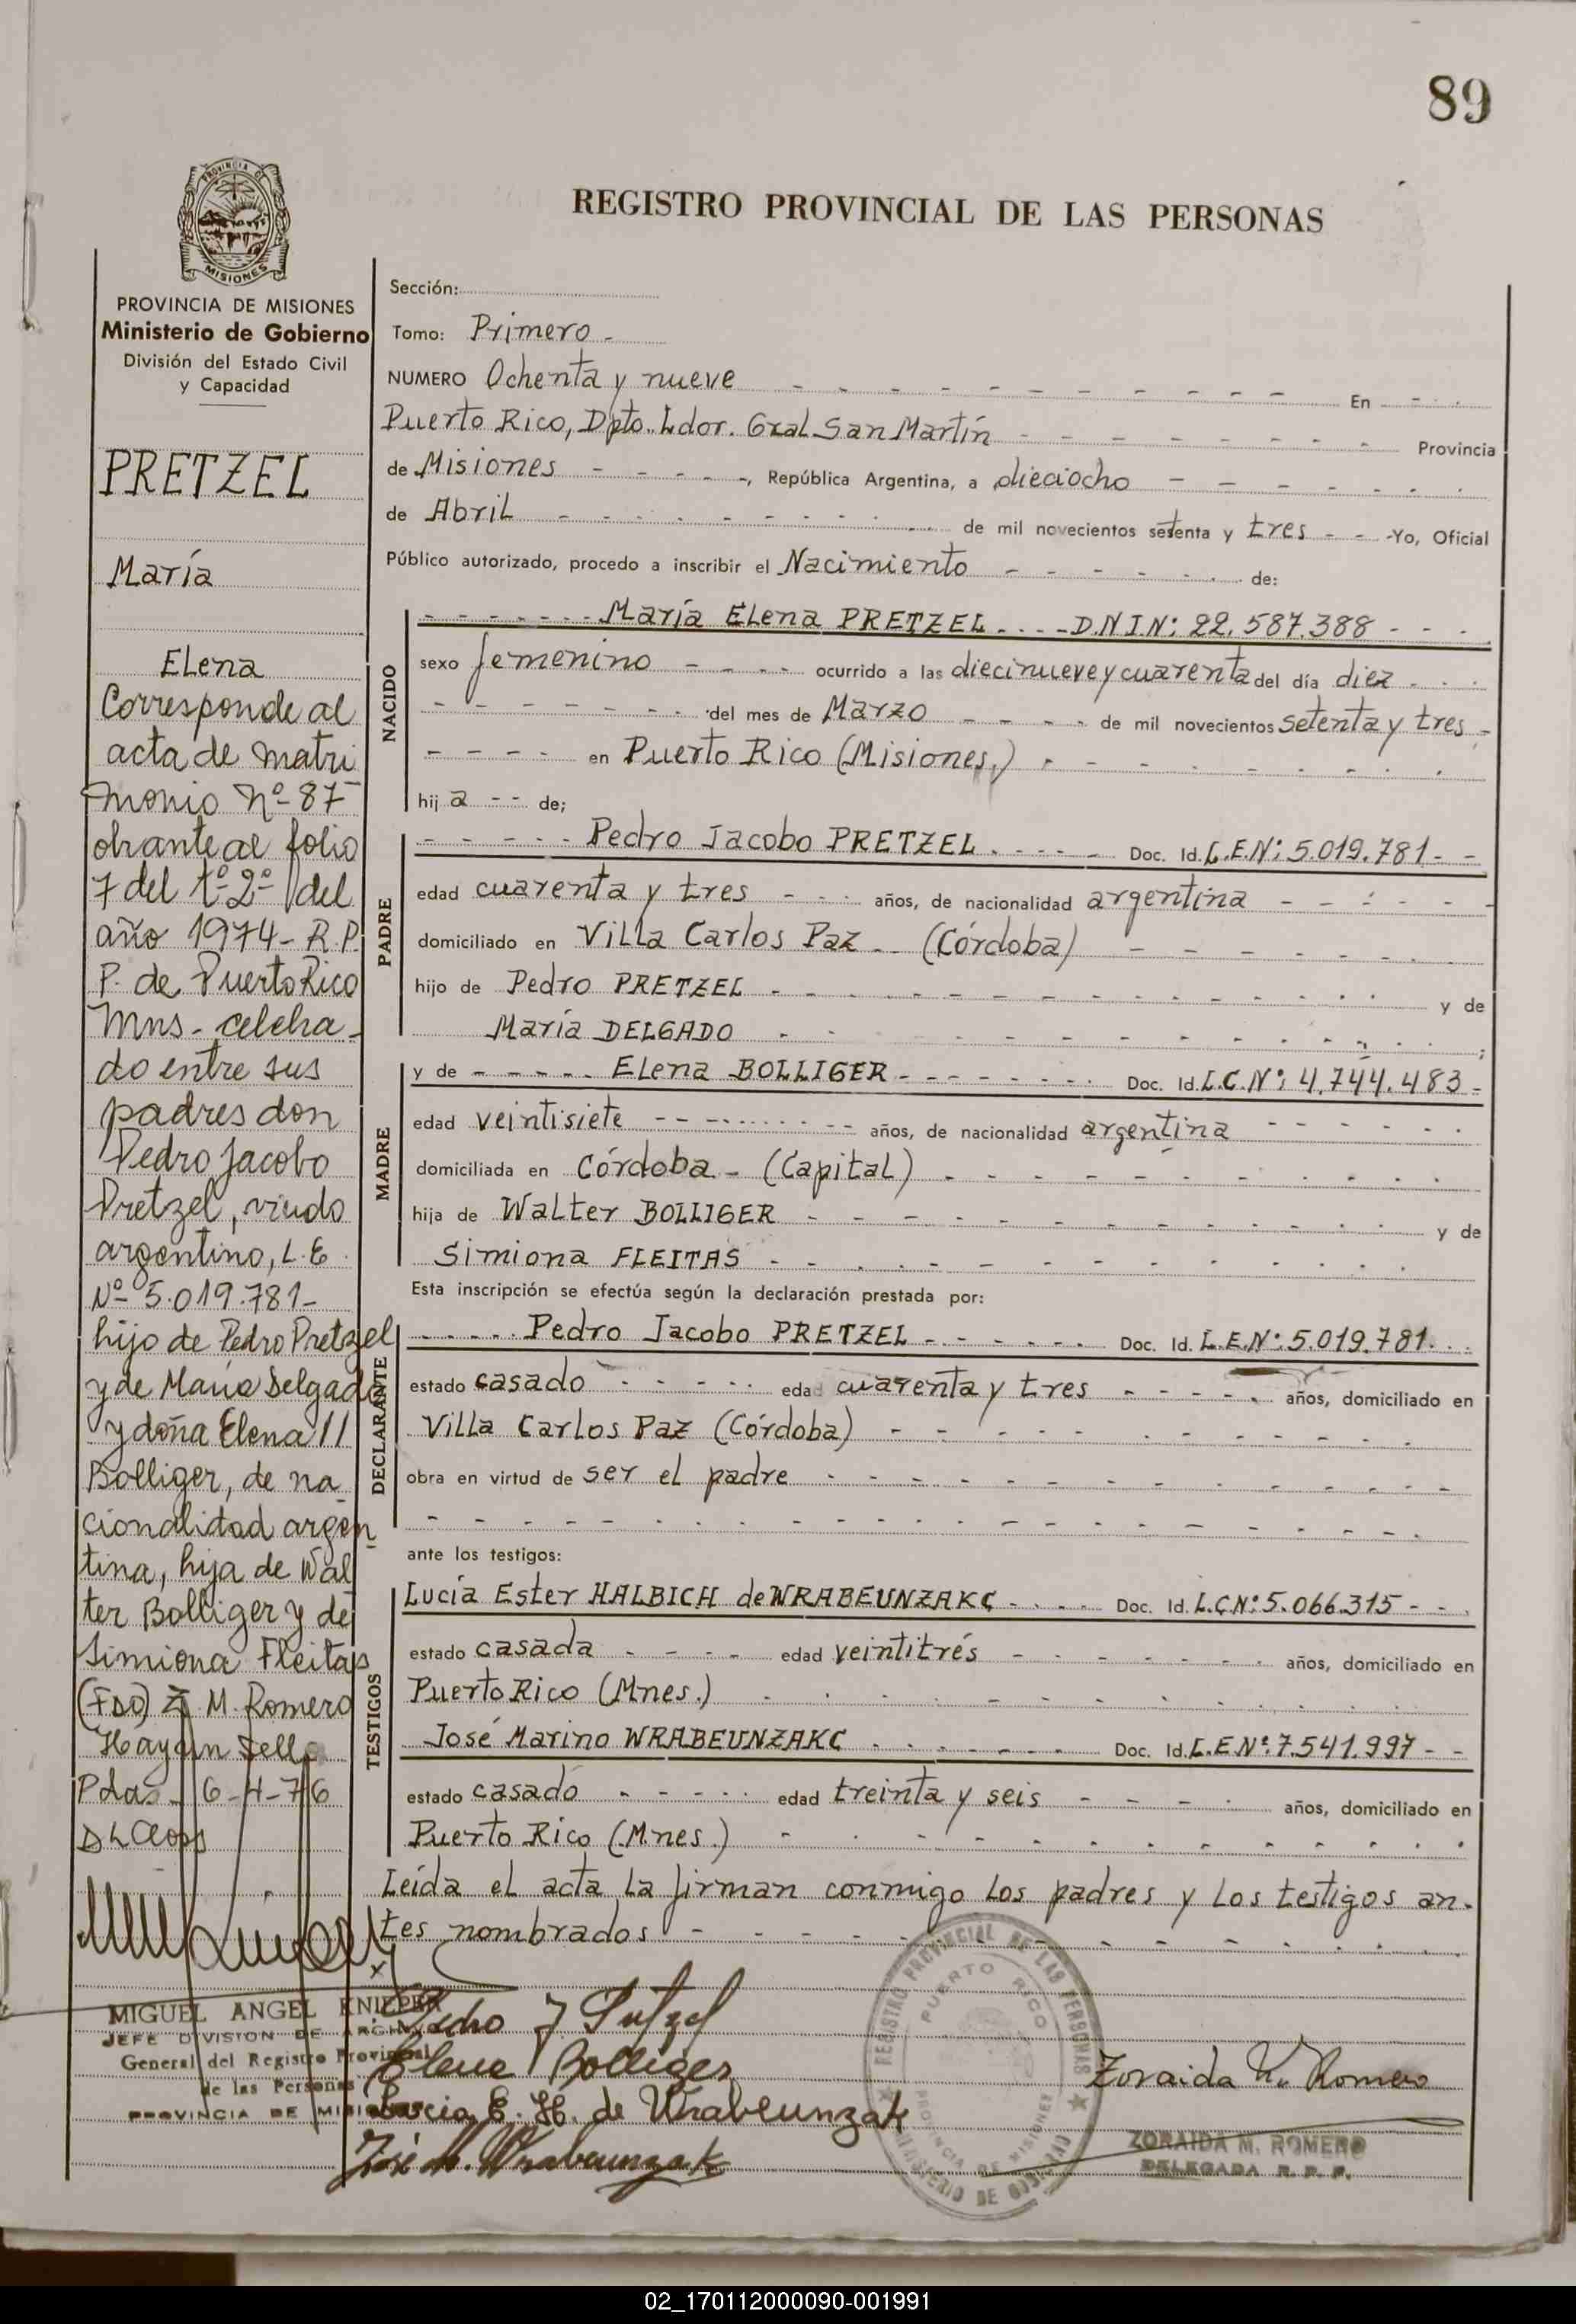 89
PROVINCIA DE
MISIONES
REGISTRO PROVINCIAL DE LAS PERSONAS
PROVINCIA DE MISIONES
Ministerio de Gobierno
División del Estado Civil
y Capacidad
PRETZEL
María
Elena
Corresponde al
acta de matri
monio Nº 87
obrante al folio
7 del tº 2º del
año 1974 - R.P.
P. de Puerto Rico
Mns - celebra-
do entre sus
padres don
Pedro Jacobo
Pretzel, viudo
argentino, L.E.
Nº 5.019.781-
hijo de Pedro Pretzel
y de María Delgado
y doña Elena //
Bolliger, de na-
cionalidad argen-
tina, hija de Wal
ter Bolliger y de
Simiona Fleitas
(FDO) Z. M. Romero
Hay un sello
Pdas - 6-4-76
MIGUEL ANGEL KNIEPER
JEFE DIVISION DE
General del Registro Provincial
de las Personas
PROVINCIA DE MISIONES
Sección:
Tomo: Primero -
NUMERO Ochenta y nueve - - - - - - - - - - En - - -
Puerto Rico, Dpto. Ldor. Gral. San Martín - - - - - - - - Provincia
de Misiones - - - - -, República Argentina, a dieciocho - - - - - - -
de Abril - - - - - - - - - de mil novecientos setenta y tres - - -Yo, Oficial
Público autorizado, procedo a inscribir el Nacimiento - - - - - - - de:
NACIDO
- - - - - - - María Elena PRETZEL - - - - D.N.I.N: 22.587.388 - - -
sexo femenino - - - - - ocurrido a las diecinueve y cuarenta del día diez - - -
- - - - - - - - del mes de Marzo - - - - - de mil novecientos setenta y tres -
- - - - en Puerto Rico (Misiones.) - - - - - - - - -
hij a - - de;
PADRE
- - - - - Pedro Jacobo PRETZEL - - - - - Doc. Id. L.E.Nº: 5.019.781 - -
edad cuarenta y tres - - - años, de nacionalidad argentina - - - - - -
domiciliado en Villa Carlos Paz - (Córdoba) - - - - - - - -
hijo de Pedro PRETZEL - - - - - - - - - - - - - y de
María DELGADO - - - - - - - - - - - - - ;
MADRE
y de - - - - - Elena BOLLIGER - - - - - - - - Doc. Id. L.C.Nº: 4.744.483 -
edad veintisiete - - - - - - - - - años, de nacionalidad argentina - - - - - -
domiciliada en Córdoba - (Capital) - - - - - - - - - - - -
hija de Walter BOLLIGER - - - - - - - - - - - - - y de
Simiona FLEITAS - - - - - - - - - - - - - -
Esta inscripción se efectúa según la declaración prestada por:
DECLARANTE
- - - - - Pedro Jacobo PRETZEL - - - - - - Doc. Id. L.E.Nº: 5.019.781. - -
estado casado - - - - - edad cuarenta y tres - - - - - años, domiciliado en
Villa Carlos Paz (Córdoba) - - - - - - - - - - - -
obra en virtud de ser el padre - - - - - - - - - - - - - -
- - - - - - - - - - - - - - - - - - - - -
ante los testigos:
TESTIGOS
Lucía Ester HALBICH de WRABEUNZAKC - - - - Doc. Id. L.C.Nº: 5.066.315 - - -
estado casada - - - - - edad veintitrés - - - - - - - años, domiciliado en
Puerto Rico (Mnes.) - - - - - - - - - - - - -
José Marino WRABEUNZAKC - - - - - - Doc. Id. L.E.Nº: 7.541.997 - -
estado casado - - - - - edad treinta y seis - - - - años, domiciliado en
Puerto Rico (Mnes.) - - - - - - - - - - - - -
Leída el acta la firman conmigo los padres y los testigos an-
tes nombrados - - - - - - - - - - - - -
Pedro J Pretzel
Elena Bolliger
Lucia E. H. de Wrabeunzak
José M. Wrabeunzak
REGISTRO PROVINCIAL DE LAS PERSONAS
PUERTO RICO
PROVINCIA DE MISIONES
MINISTERIO DE GOBIERNO
Zoraida M. Romero
ZORAIDA M. ROMERO
DELEGADA R. P. P.
02_170112000090-001991